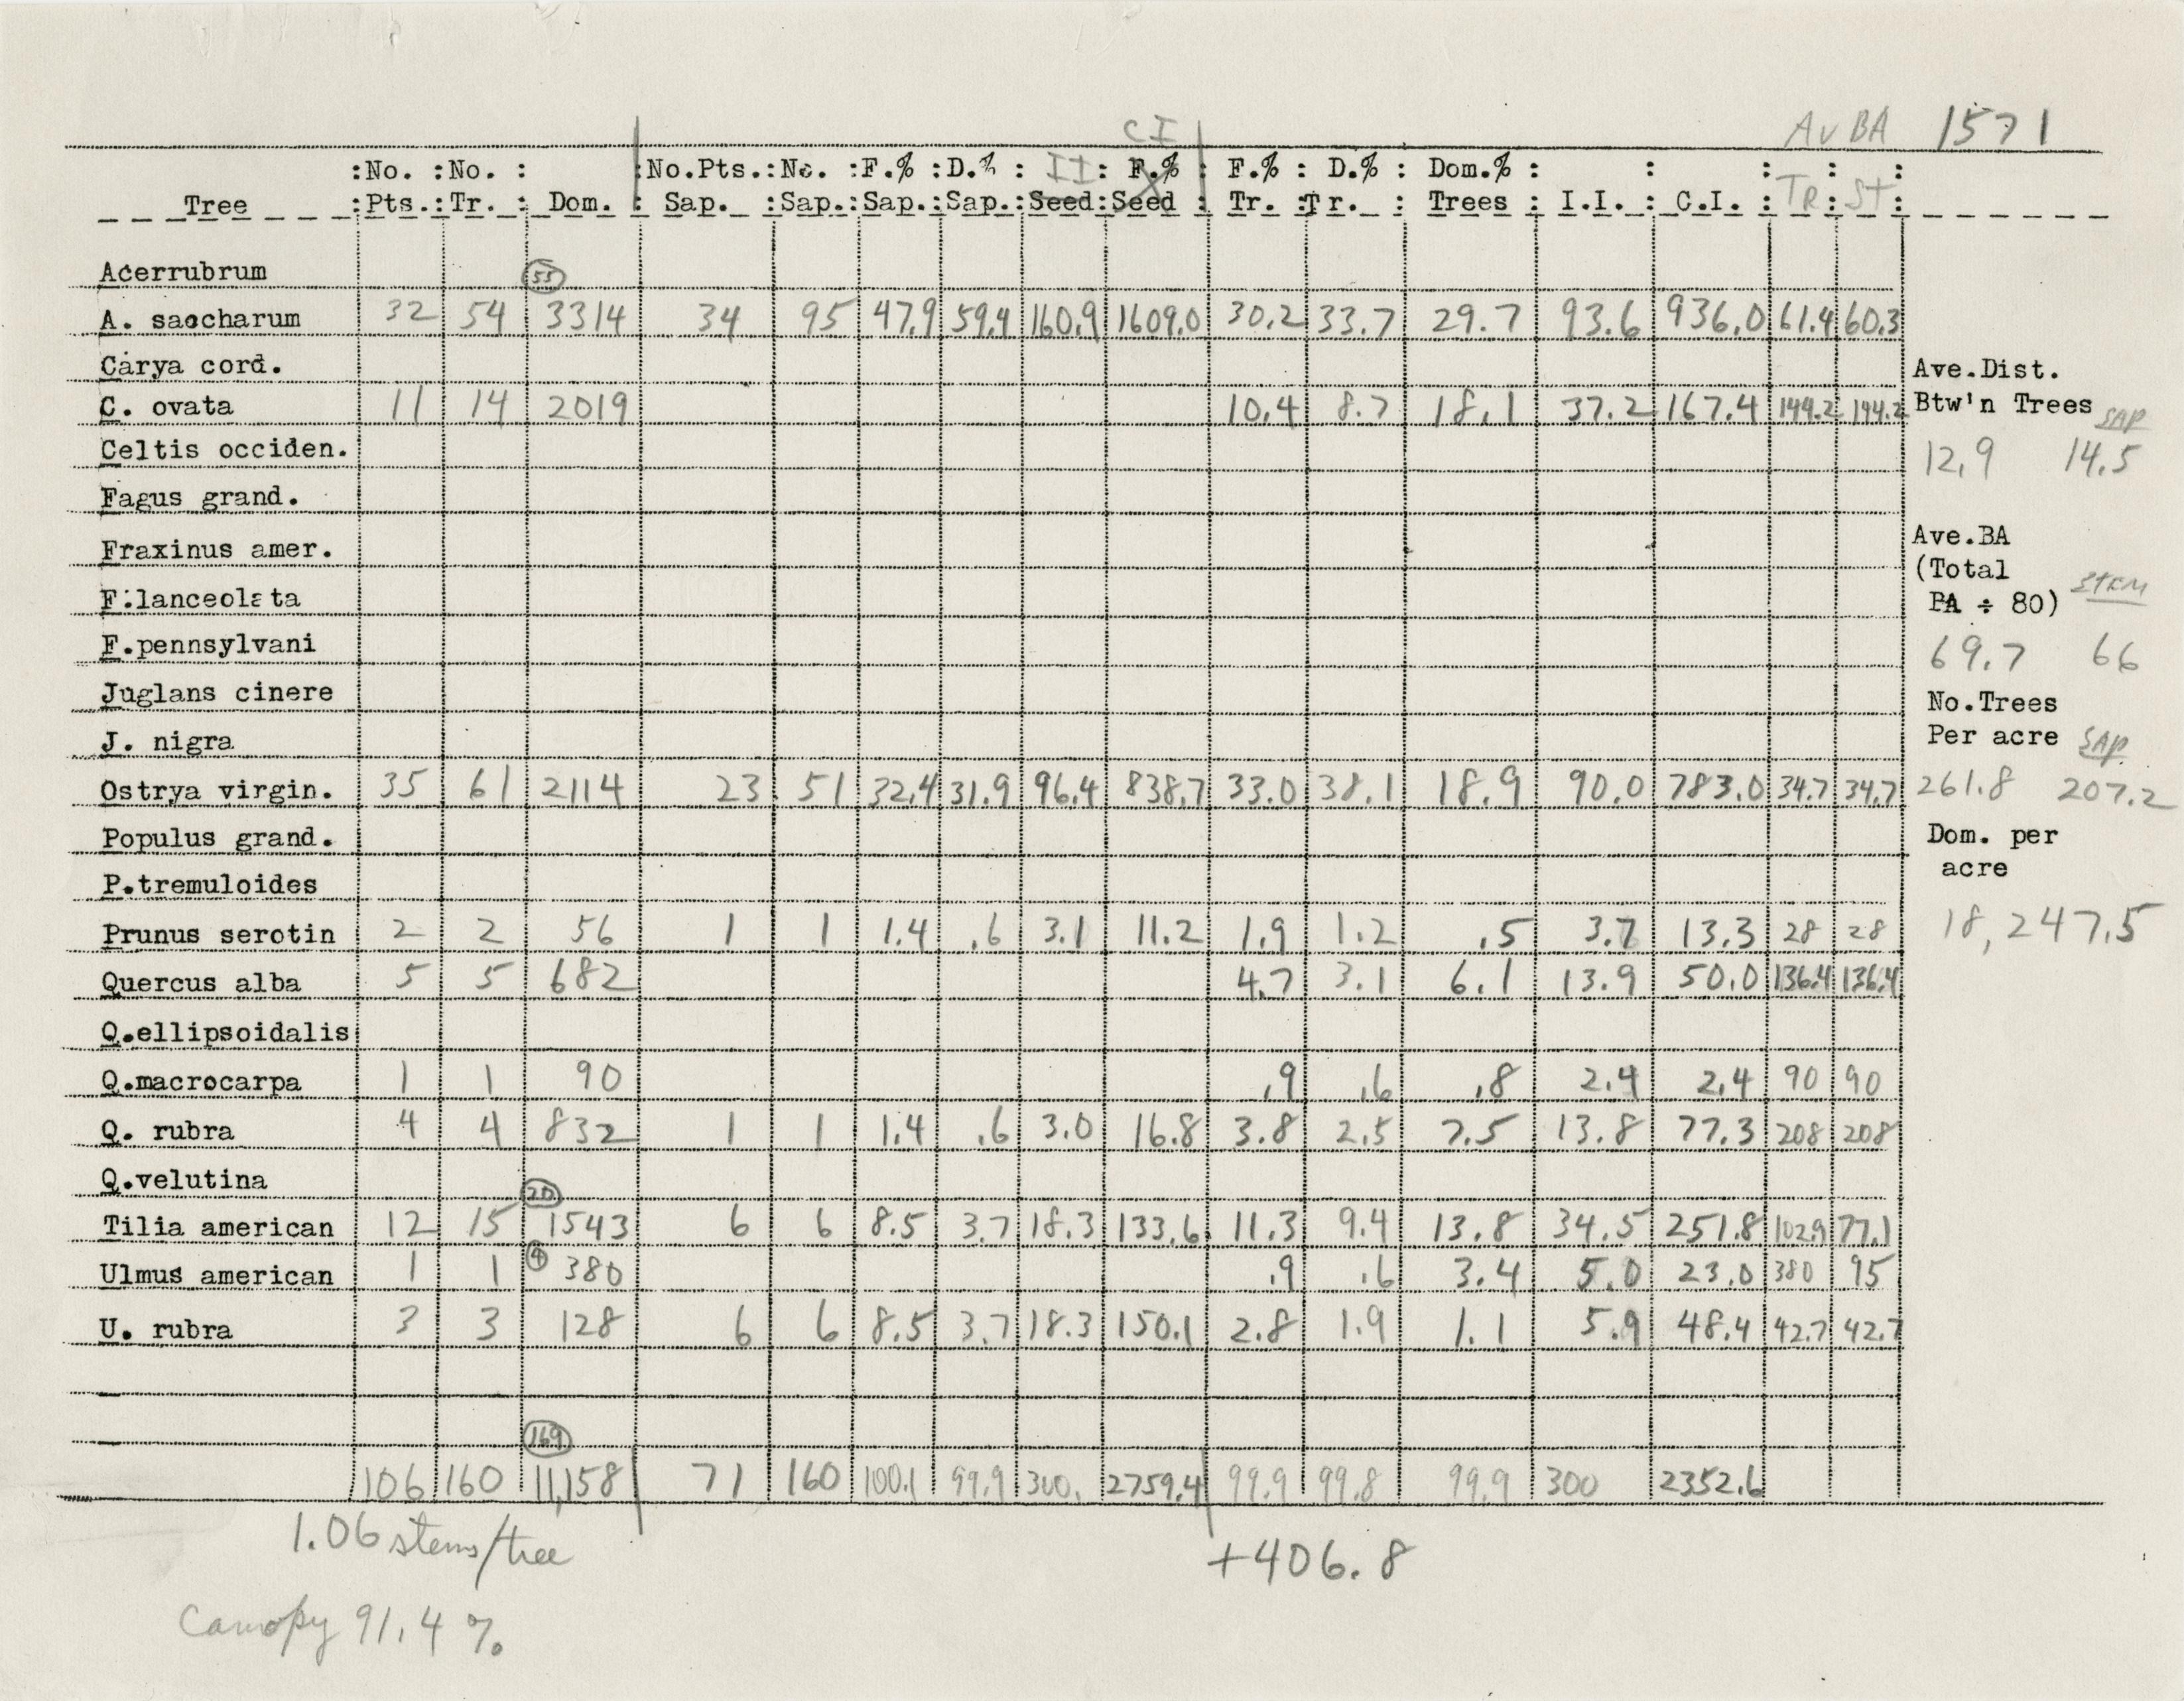 Av BA 1571
CI
:No. :No. : :No.Pts.:No. :F.% :D.% : II: F.% : F.% : D.% : Dom.% : : : : :
Tree :Pts.:Tr. : Dom. : Sap. :Sap.:Sap.:Sap.:Seed:Seed : Tr. :Tr. : Trees : I.I. : C.I. :TR: St:
Acerrubrum
55
A. saccharum 32 54 3314 34 95 47.9 59.4 160.9 1609.0 30.2 33.7 29.7 93.6 936.0 61.4 60.3
Carya cord.
Ave.Dist.
C. ovata 11 14 2019 10.4 8.7 18.1 37.2 167.4 144.2 144.2
Btw'n Trees SAP
Celtis occiden.
12.9 14.5
Fagus grand.
Ave.BA
Fraxinus amer.
(Total
F.lanceolata
BA ÷ 80) STEM
F.pennsylvani
69.7 66
Juglans cinere
No.Trees
J. nigra
Per acre SAP
Ostrya virgin. 35 61 2114 23 51 32.4 31.9 96.4 838.7 33.0 38.1 18.9 90.0 783.0 34.7 34.7
261.8 207.2
Populus grand.
Dom. per
acre
P.tremuloides
Prunus serotin 2 2 56 1 1 1.4 .6 3.1 11.2 1.9 1.2 .5 3.7 13.3 28 28
18,247.5
Quercus alba 5 5 682 4.7 3.1 6.1 13.9 50.0 136.4 136.4
Q.ellipsoidalis
Q.macrocarpa 1 1 90 .9 .6 .8 2.4 2.4 90 90
Q. rubra 4 4 832 1 1 1.4 .6 3.0 16.8 3.8 2.5 7.5 13.8 77.3 208 208
Q.velutina
20
Tilia american 12 15 1543 6 6 8.5 3.7 18.3 133.6 11.3 9.4 13.8 34.5 251.8 102.9 77.1
Ulmus american 1 1 4 380 .9 .6 3.4 5.0 23.0 380 95
U. rubra 3 3 128 6 6 8.5 3.7 18.3 150.1 2.8 1.9 1.1 5.9 48.4 42.7 42.7
169
106 160 11,158 71 160 100.1 99.9 300. 2759.4 99.9 99.8 99.9 300 2352.6
1.06 stems/tree
+406.8
Canopy 91.4 %